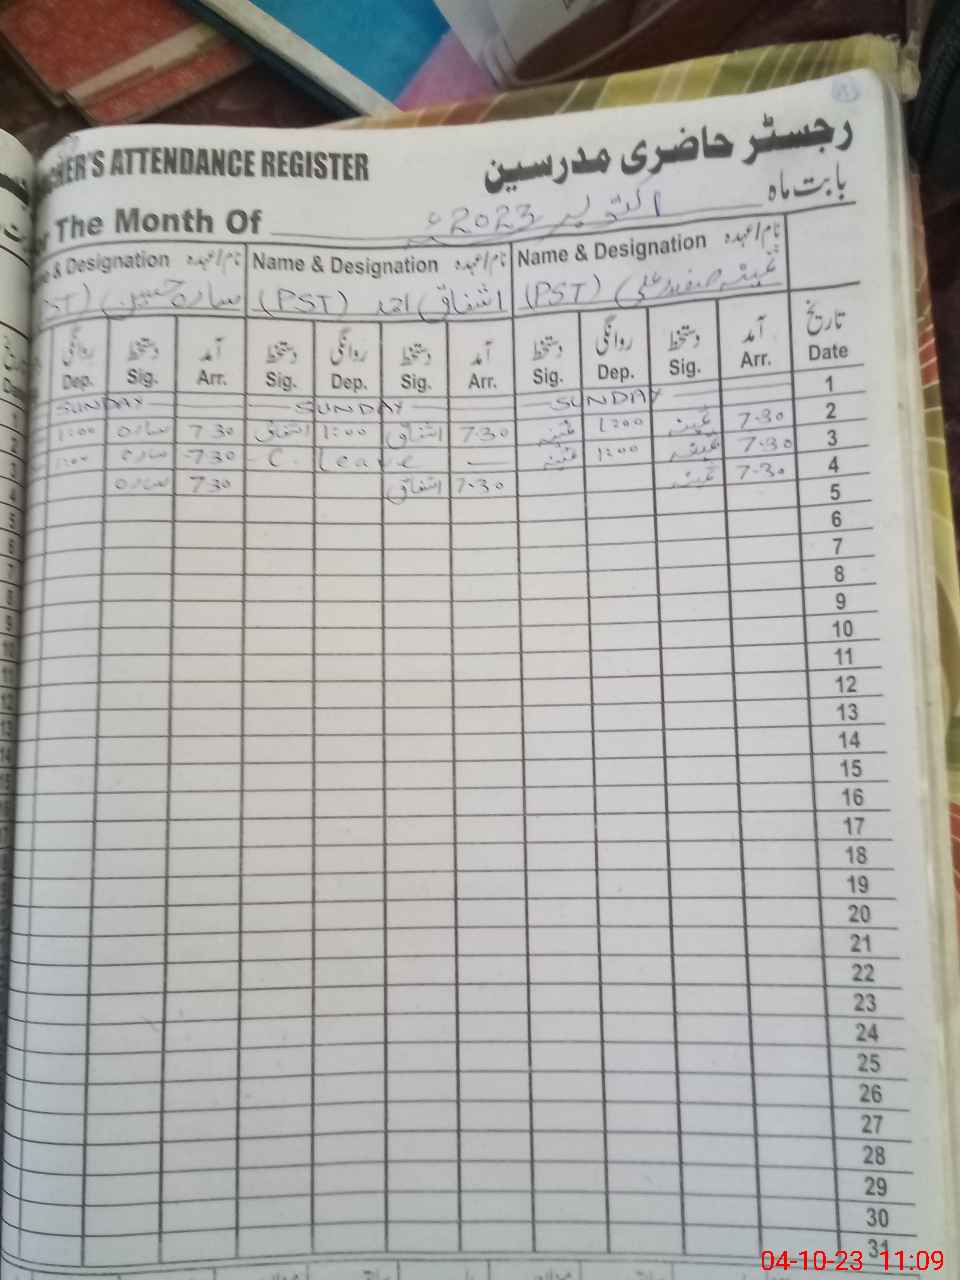 CHER'S ATTENDANCE REGISTER رجسٹر حاضری مدرسین
The Month Of اکتوبر 2023ء بابت ماہ
& Designation نام/عہدہ Name & Designation نام/عہدہ Name & Designation نام/عہدہ
ST) سارہ حسین (PST) اشفاق احمد (PST) صفدر علی
روانگی دستخط آمد دستخط روانگی دستخط آمد دستخط روانگی دستخط آمد تاریخ
Dep. Sig. Arr. Sig. Dep. Sig. Arr. Sig. Dep. Sig. Arr. Date
SUNDAY SUNDAY SUNDAY 1
1:00 سارہ 7 30 اشفاق 1:00 اشفاق 7.30 1:00 7.30 2
1:00 سارہ 7 30 C. Leave 1:00 7.30 3
سارہ 7 30 اشفاق 7.30 7.30 4
5
6
7
8
9
10
11
12
13
14
15
16
17
18
19
20
21
22
23
24
25
26
27
28
29
30
31
04-10-23 11:09